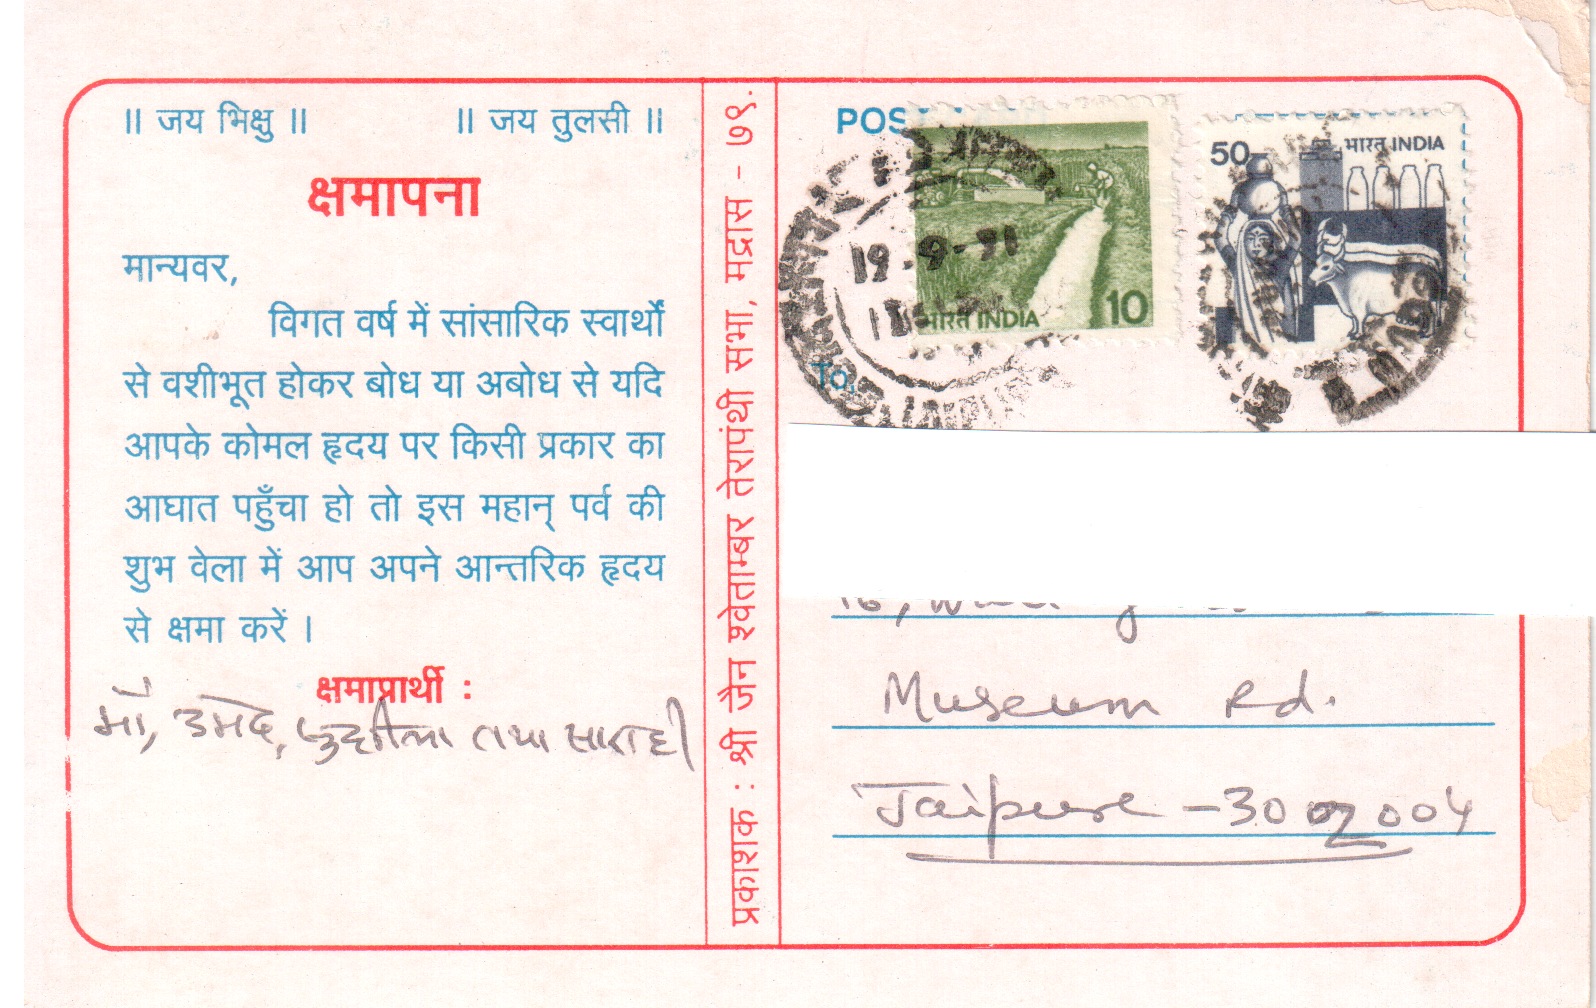 ॥ जय भिक्षु ॥ ॥ जय तुलसी ॥
क्षमापना
मान्यवर,
विगत वर्ष में सांसारिक स्वार्थों
से वशीभूत होकर बोध या अबोध से यदि
आपके कोमल हृदय पर किसी प्रकार का
आघात पहुँचा हो तो इस महान् पर्व की
शुभ वेला में आप अपने आन्तरिक हृदय
से क्षमा करें ।
क्षमाप्रार्थी :
माँ, उमेद, सुशीला तथा
प्रकाशक : श्री जैन श्वेताम्बर तेरापंथी सभा, मद्रास - ७९.
POS
10
भारत INDIA
50
भारत INDIA
19-9-91
To,
Museum Rd.
Jaipur - 302004